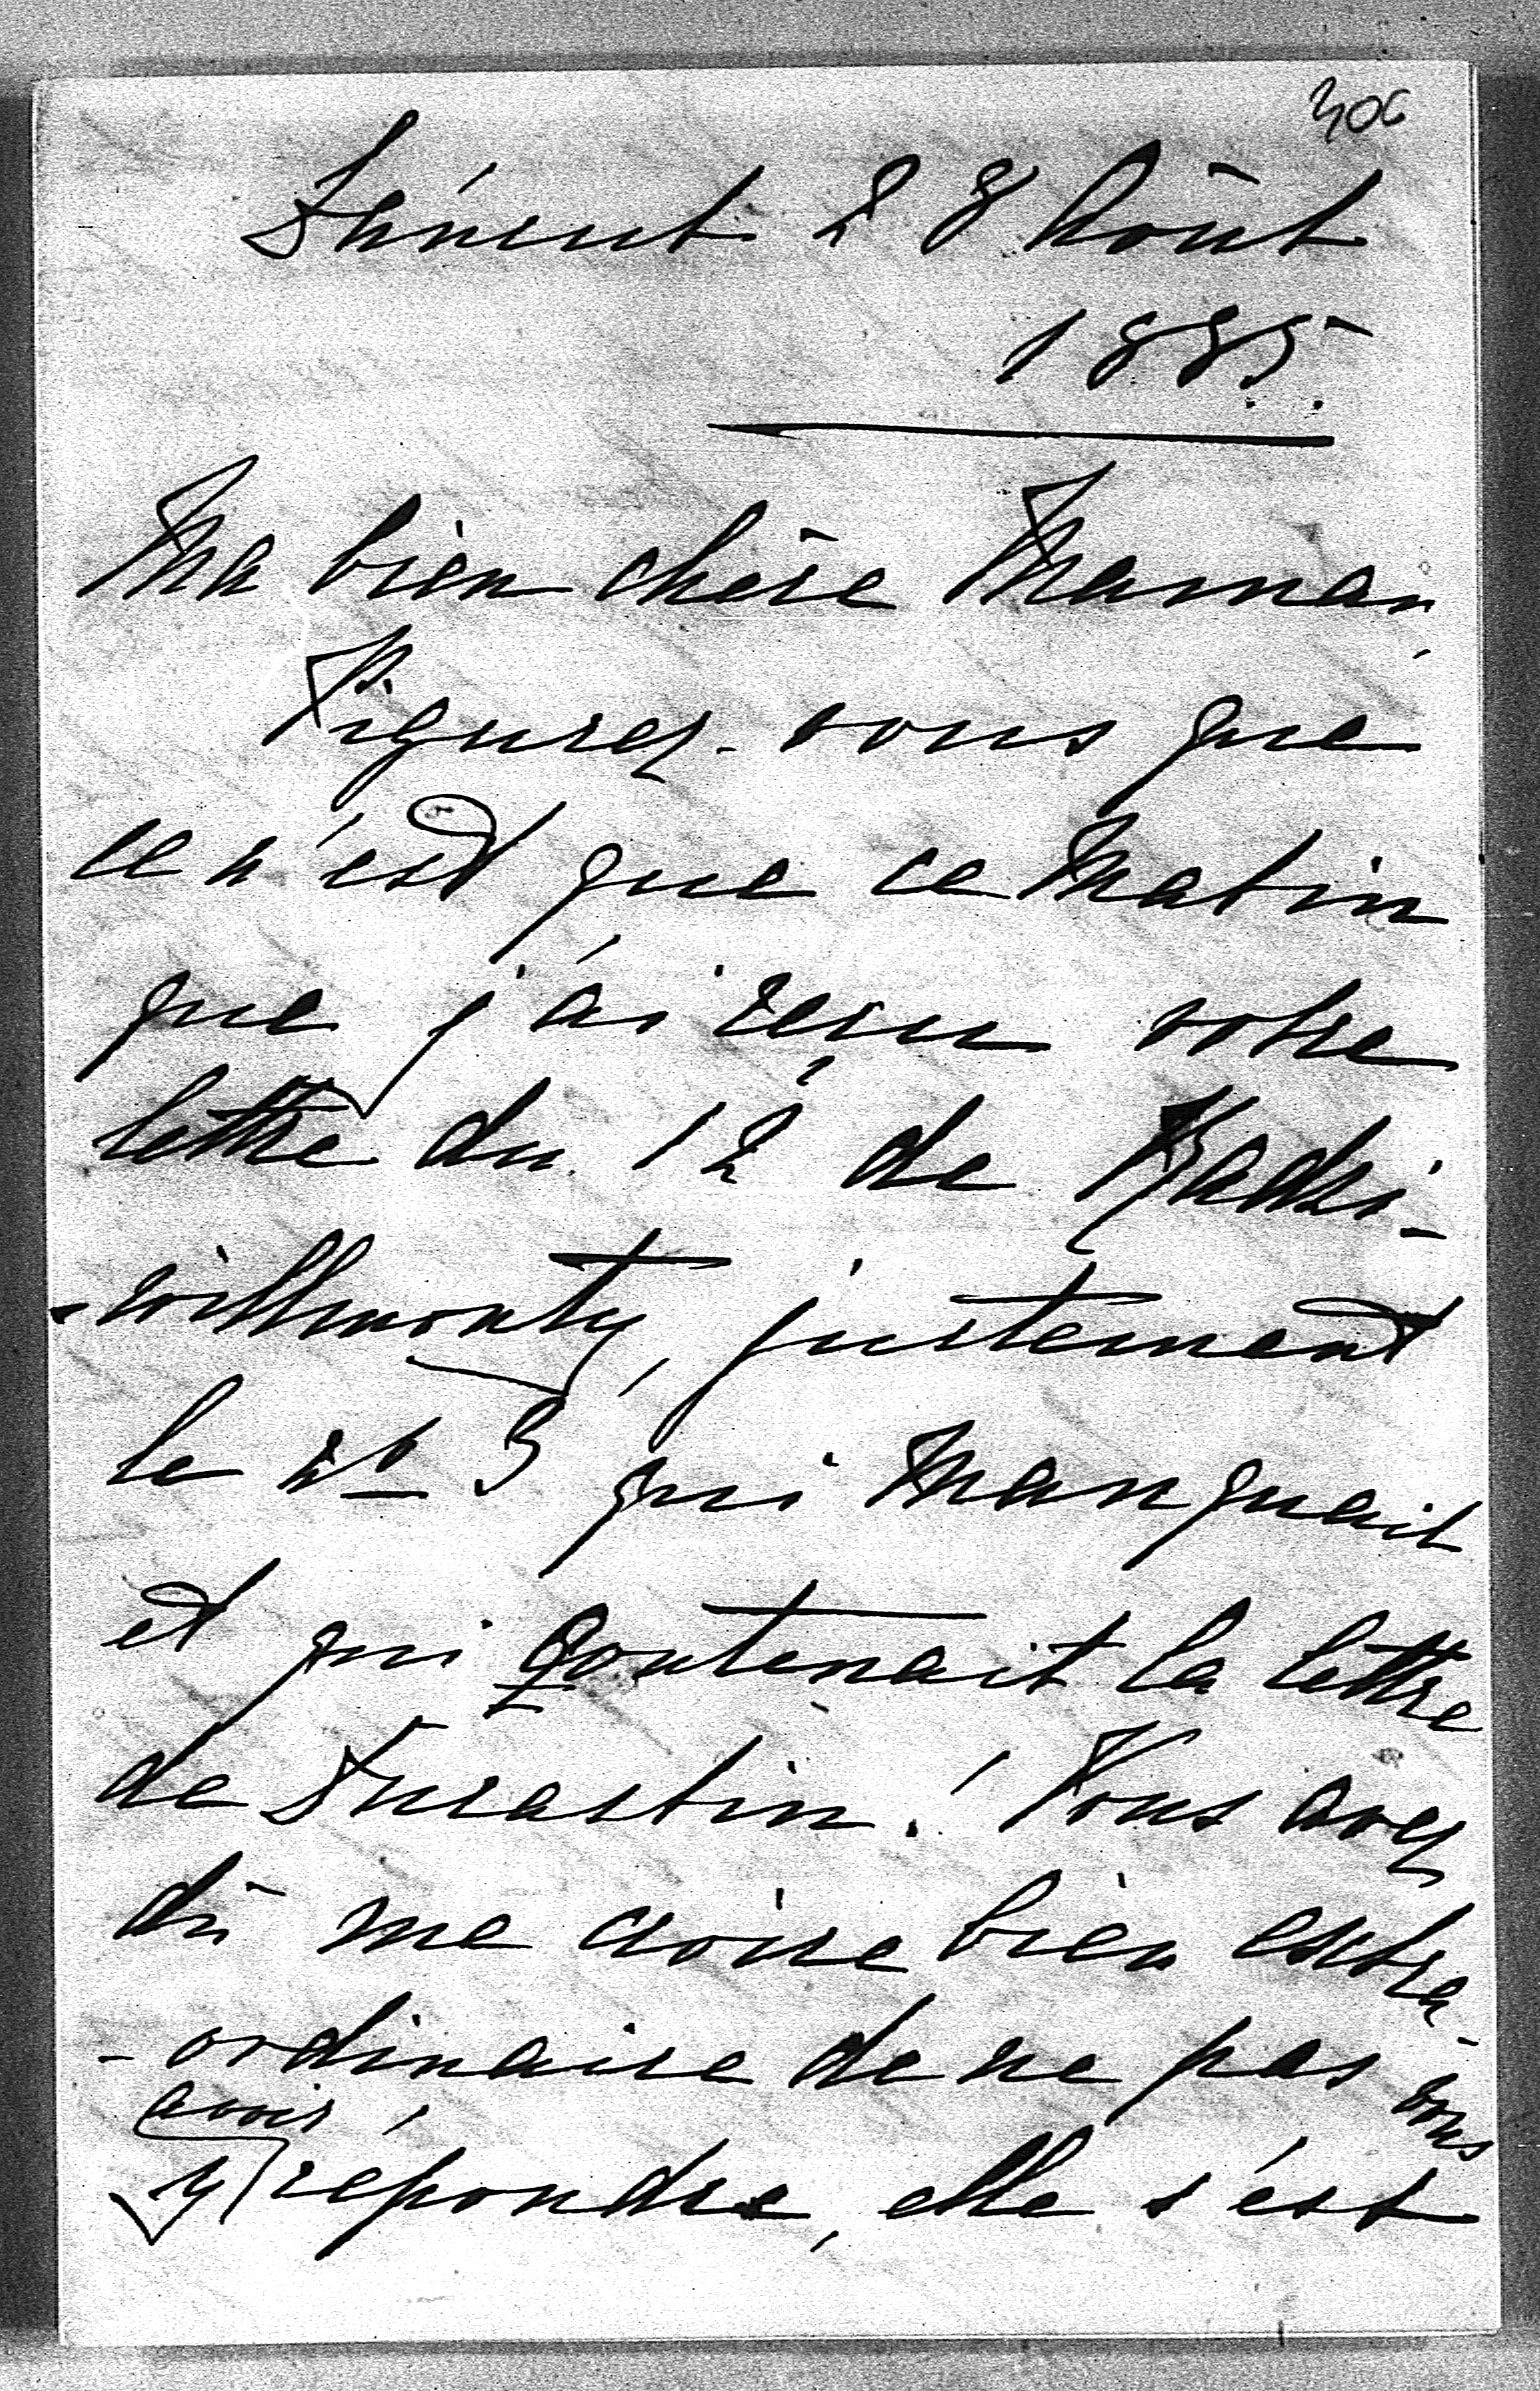 306
28 Août
1885.
Ma bien chère Maman,
Figurez-vous que
ce n'est que ce matin
que j'ai reçu votre
lettre du 12 de Radzi-
-willmonty, justement
le No 3 qui manquait
et qui contenait la lettre
de ! Vous avez
dû me croire bien extra-
-ordinaire de ne pas vous
avoir
y répondre, elle s'est